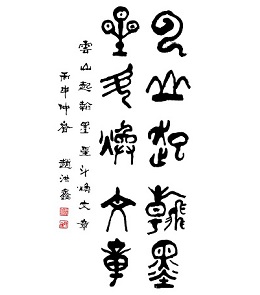 雲山起翰墨
星斗煥文章
雲山起翰墨星斗煥文章
丙申仲春 趙洪鑫